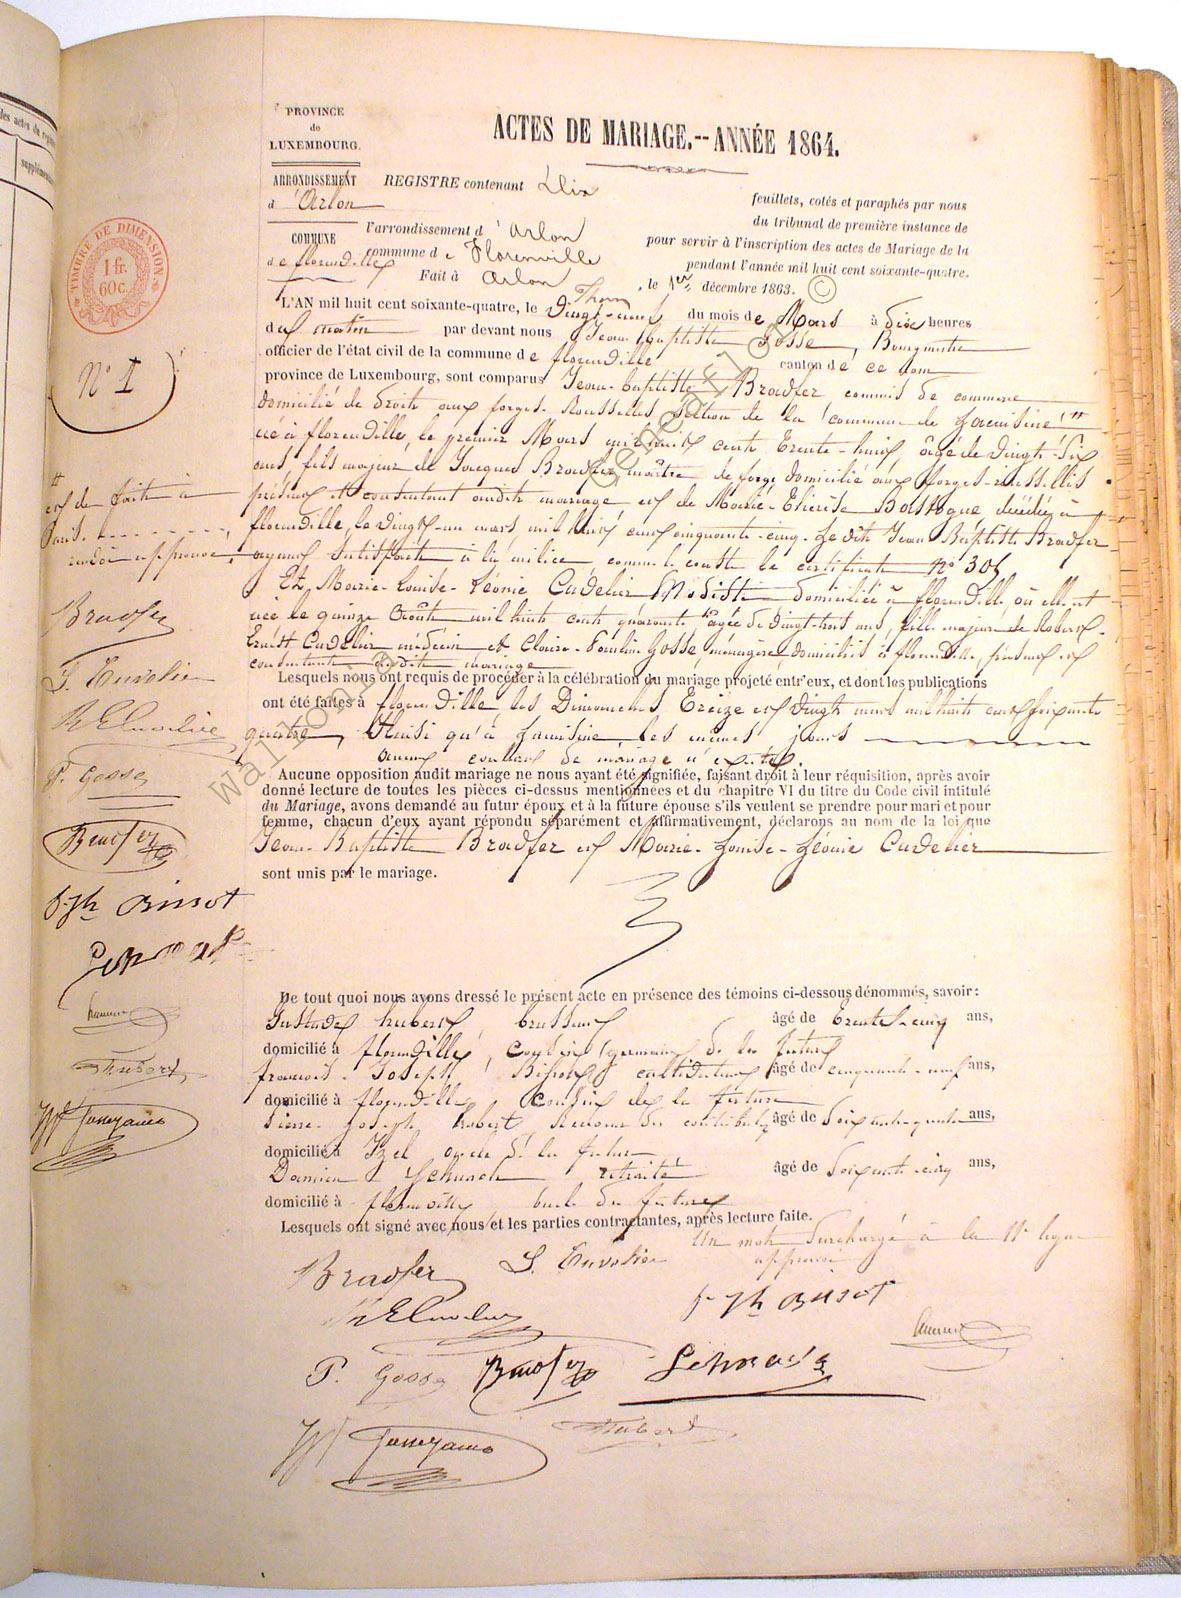 des actes du
supplémen
PROVINCE
de
LUXEMBOURG.
ACTES DE MARIAGE.-- ANNÉE 1864.
ARRONDISSEMENT
d'Arlon
REGISTRE contenant Dix
feuillets, cotés et paraphés par nous
du tribunal de première instance de
l'arrondissement d'Arlon
pour servir à l'inscription des actes de Mariage de la
COMMUNE
de florenville
commune de Florenville
pendant l'année mil huit cent soixante-quatre.
Fait à Arlon, le 1er décembre 1863.
TIMBRE DE DIMENSION
1 fr.
60 c.
N° 1
L'AN mil huit cent soixante-quatre, le vingt-neuf du mois de Mars à dix heures
du matin par devant nous Jean Baptiste Gosse, Bourgmestre
officier de l'état civil de la commune de florenville canton de ce nom
province de Luxembourg, sont comparus Jean-Baptiste Bradfer, commis de commerce
domicilié de droit aux forges-Rousselles, section de la commune de Jamoigne "
né à florenville, le premier Mars mil huit cent trente-huit, âgé de vingt-six
ans, fils majeur de Jacques Bradfer maître de forge domicilié aux forges-rousselles
présent et consentant audit mariage et de Marie-Thérèse Bastogne décédée à
florenville, le vingt-un mars mil huit cent cinquante-cinq. Le dit Jean Baptiste Bradfer
ayant satisfait à la milice, comme le conste le certificat n° 305
et de fait à
renvoi approuvé
Et, Marie-Louise-Léonie Cuvelier Modiste domiciliée à florenville où elle est
née le quinze Août mil huit cent quarante âgée de vingt-trois ans, fille majeure de Robert-
Ernest Cuvelier médecin et Claire-Pauline Gosse, ménagère, domiciliés à florenville, présents et
consentant audit mariage
Lesquels nous ont requis de procéder à la célébration du mariage projeté entr'eux, et dont les publications
ont été faites à florenville les Dimanches treize et vingt mars mil huit cent soixante
quatre, Ainsi qu'à Jamoigne les mêmes jours
aucun contrat de mariage n'existe.
Aucune opposition audit mariage ne nous ayant été signifiée, faisant droit à leur réquisition, après avoir
donné lecture de toutes les pièces ci-dessus mentionnées et du chapitre VI du titre du Code civil intitulé
du Mariage, avons demandé au futur époux et à la future épouse s'ils veulent se prendre pour mari et pour
femme, chacun d'eux ayant répondu séparément et affirmativement, déclarons au nom de la loi que
Jean-Baptiste Bradfer et Marie-Louise-Léonie Cuvelier
sont unis par le mariage.
Bradfer
L. Cuvelier
P. Gosse
Bradfer
Hubert
De tout quoi nous avons dressé le présent acte en présence des témoins ci-dessous dénommés, savoir:
hubert, âgé de trente-cinq ans,
domicilié à florenville, cousin germain de la future
françois-Joseph cultivateur âgé de cinquante-neuf ans,
domicilié à florenville cousin de la future
Pierre-Joseph hubert, Receveur des contributions âgé de soixante-quatre ans,
domicilié à Izel oncle de la future
Damien retraité âgé de soixante-cinq ans,
domicilié à florenville
Lesquels ont signé avec nous et les parties contractantes, après lecture faite.
Un mot surchargé à la 11e ligne
approuvé
Bradfer
L. Cuvelier
P. Gosse
Bradfer
Hubert
Geneaflor wallonia ©